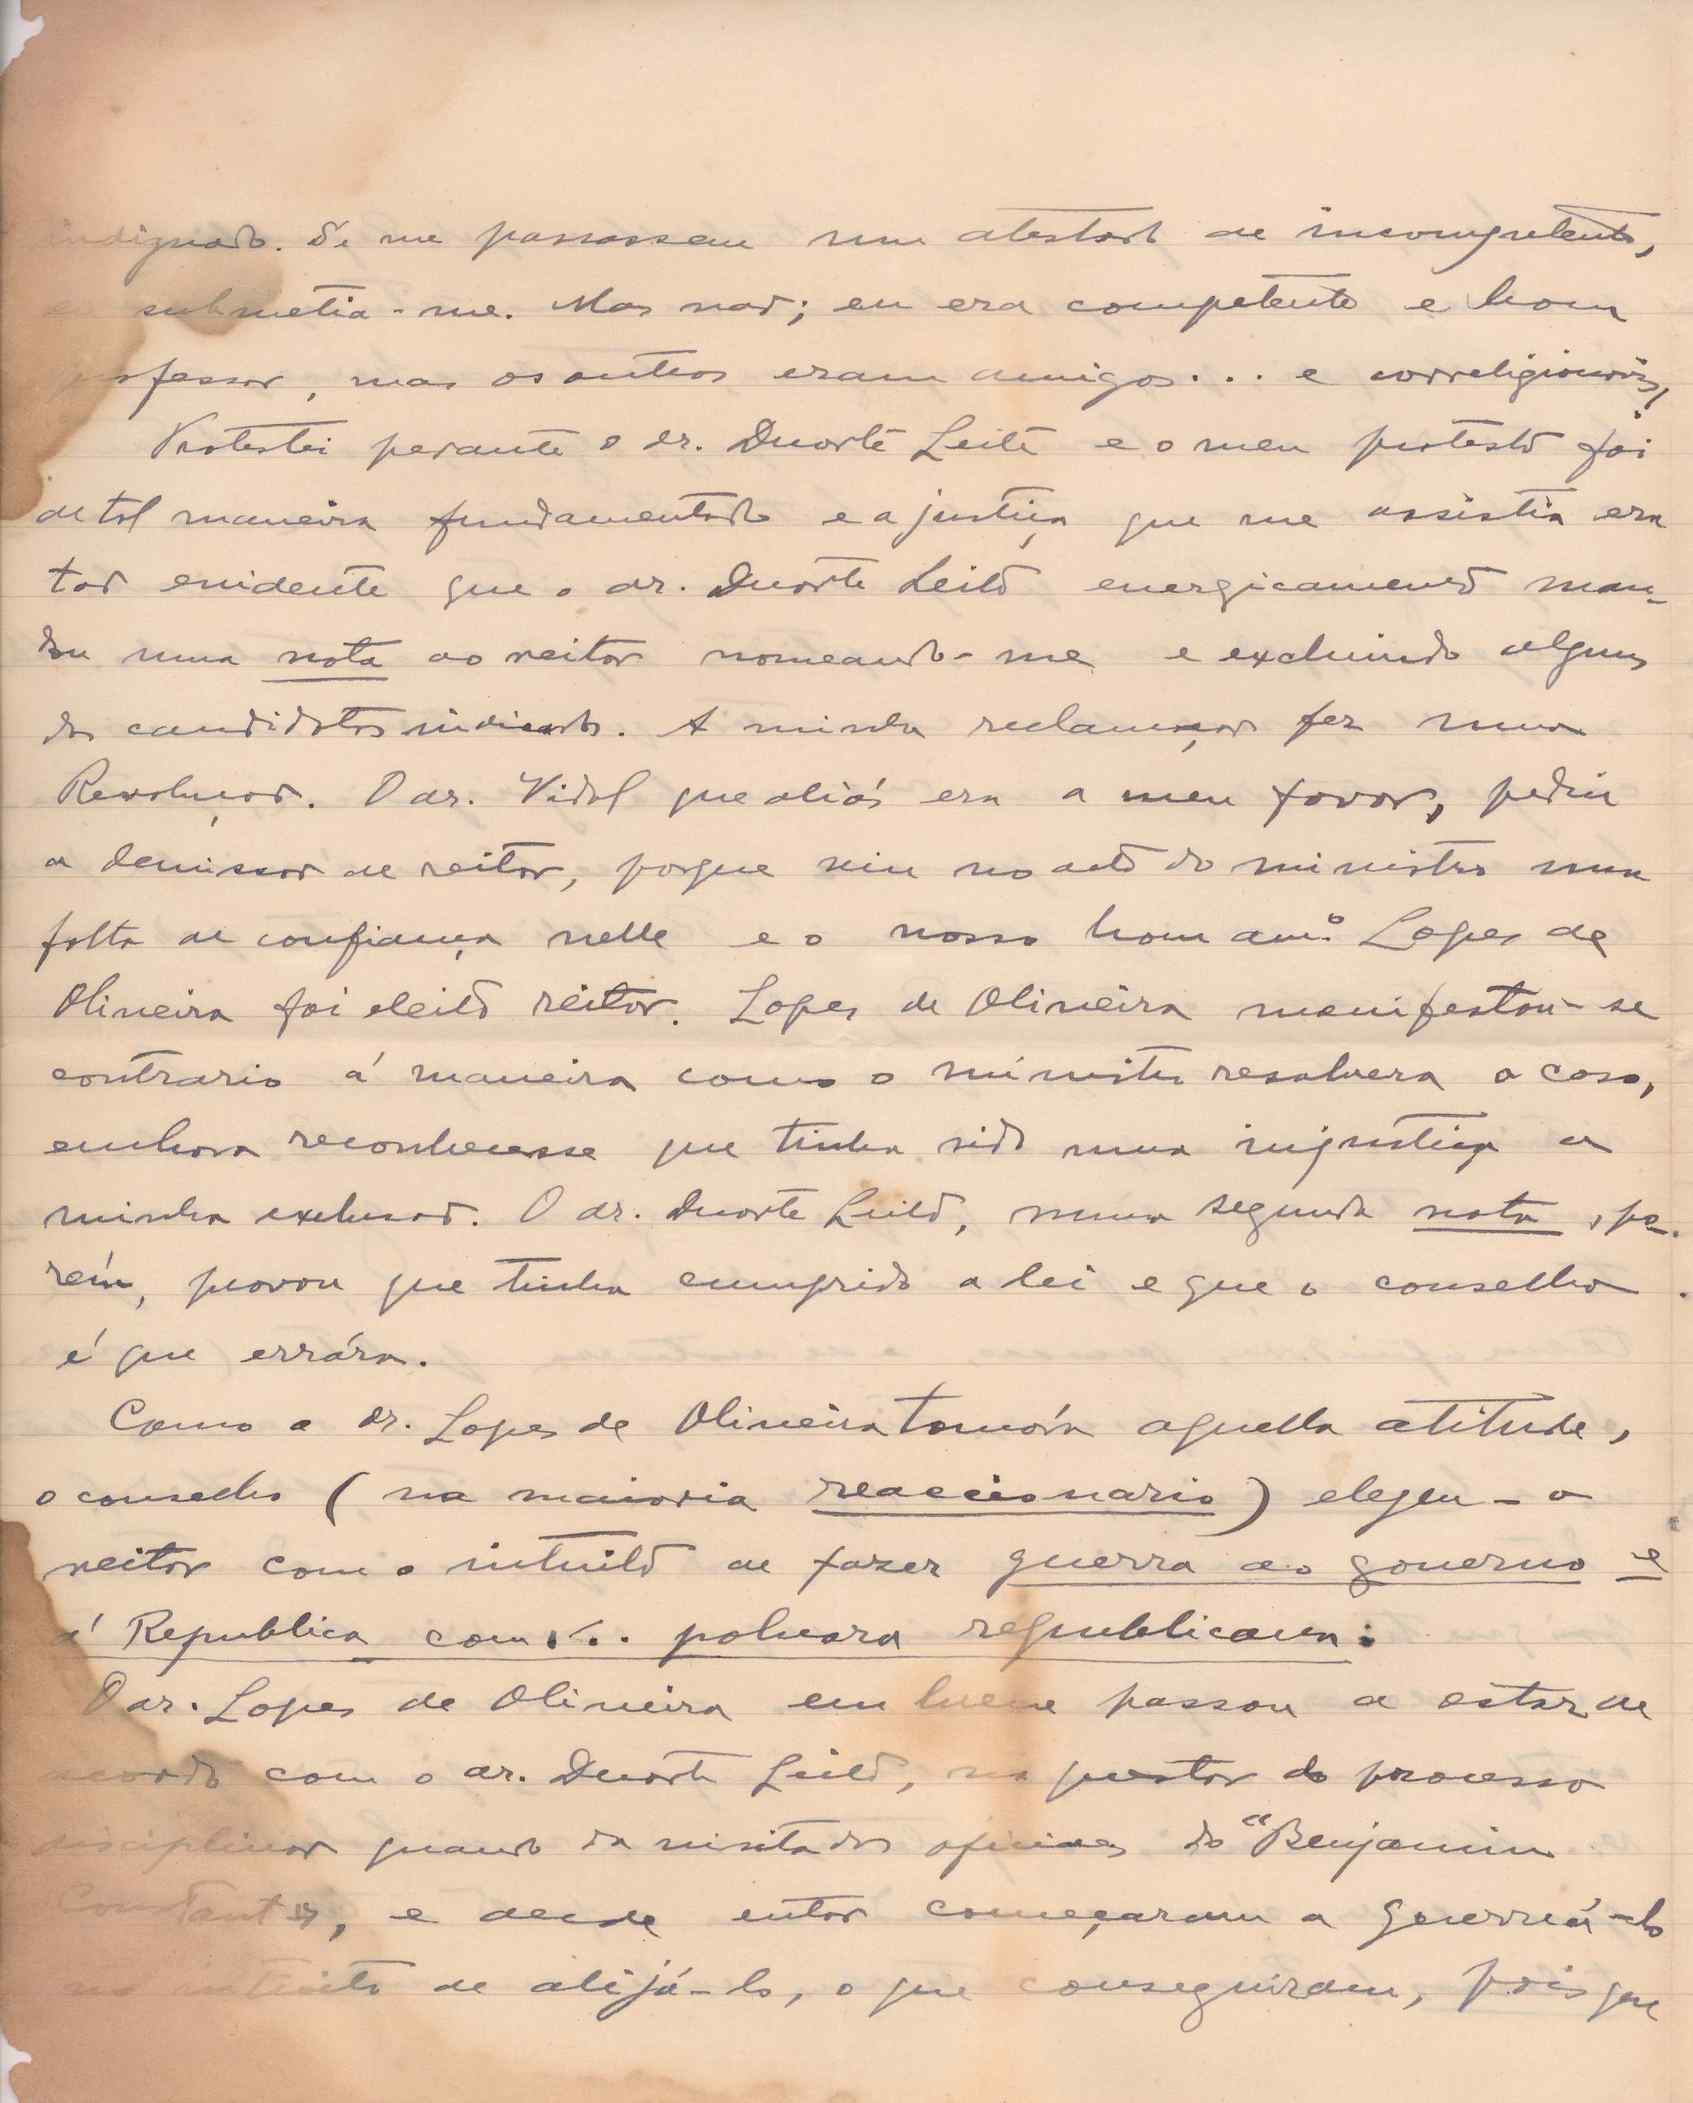 indignado. Se me passassem um atestado de incompetente,
eu submetia-me. Mas não; eu era competente e bom
professor, mas os outros eram amigos... e correligionarios,
Protestei perante o dr. Duarte Leite e o meu protesto foi
de tal maneira fundamentado e a justiça que me assistia era
tão evidente que o dr. Duarte Leite energicamente man-
dou uma nota ao reitor nomeando-me e excluindo alguns
dos candidatos indicados. A minha reclamação fez uma
Revolução. O dr. Vidal que aliás era a meu favor, pediu
a demissão de reitor, porque viu no acto do ministro uma
falta de confiança nelle e o nosso bom am.º Lopes de
Oliveira foi eleito reitor. Lopes de Oliveira manifestou-se
contrario á maneira como o ministro resolvera o caso,
embora reconhecesse que tinha sido uma injustiça a
minha exclusão. O dr. Duarte Leite, numa segunda nota, po-
rém, provou que tinha cumprido a lei e que o conselho
é que errára.
Como o dr. Lopes de Oliveira tomára aquella atitude,
o conselho (na maioria reaccionario) elegeu-o
reitor com o intuito de fazer guerra ao governo e
á Republica com... polvora republicana.
O dr. Lopes de Oliveira em breve passou a estar de
acordo com o dr. Duarte Leite, na questão do processo
disciplinar quando da visita dos oficiaes do "Benjamin
Constant", e desde então começaram a guerreá-lo
no intuito de alijá-lo, o que conseguiram, pois que